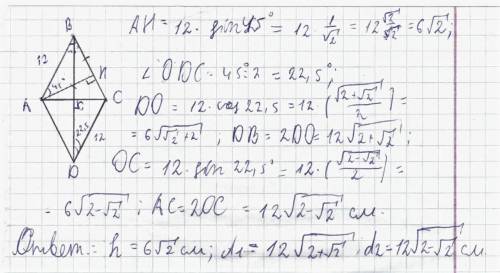 B
12
H
45°
A
C
22,5
12
D
AH = 12 · sin 45° = 12 · 1/√2 = 12 √2/√2·√2 = 6√2;
∠ODC = 45 : 2 = 22,5°;
DO = 12 · cos 22,5 = 12 · (√(2+√2)/2) =
= 6√(√2+2), DB = 2DO = 12√(2+√2);
OC = 12 · sin 22,5° = 12 · (√(2-√2)/2) =
= 6√(2-√2); AC = 2OC = 12√(2-√2) см.
Ответ: h = 6√2 см; d1 = 12√(2+√2), d2 = 12√(2-√2) см.